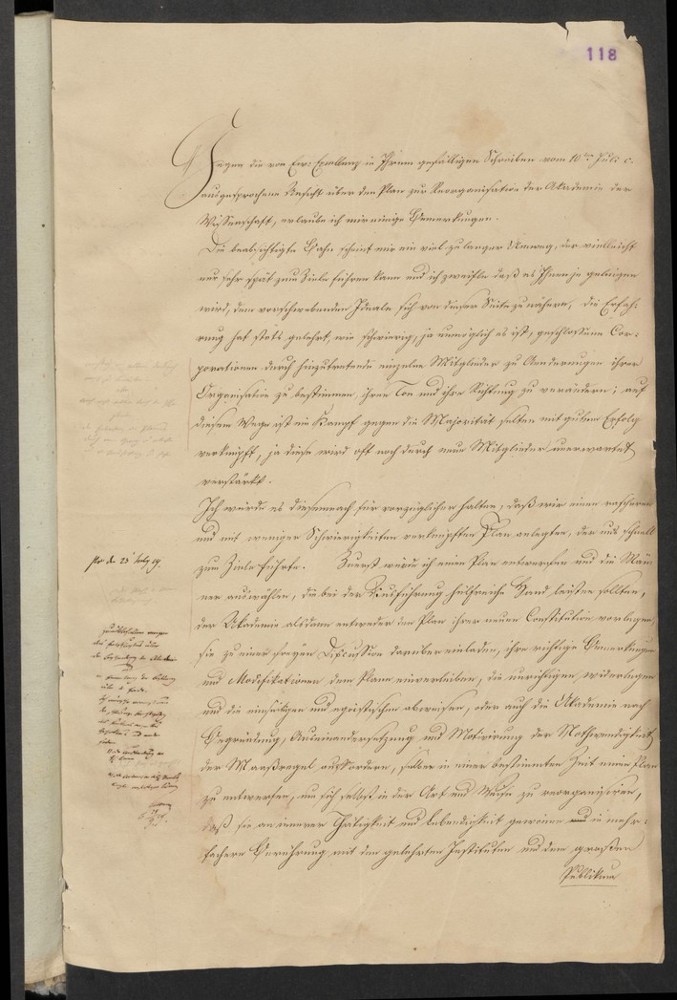 118
Gegen die von Ew: Excellenz in Ihrem gefälligen Schreiben vom 10ten Julii c.
ausgesprochene Ansicht über den Plan zur Reorganisation der Akademie der
Wissenschaft, erlaube ich mir einige Bemerkungen.
Die beabsichtigte Bahn scheint mir ein viel zu langer Umweg, der vielleicht
nur sehr spät zum Ziele führen kann und ich zweifle daß es Ihnen je gelingen
wird, dem vorschwebenden Ideale sich von dieser Seite zu nähern, die Erfah-
rung hat stets gelehrt, wie schwierig, ja unmöglich es ist, geschlossene Cor-
porationen durch hinzutretende einzelne Mitglieder zu Aenderungen ihrer
Organisation zu bestimmen, ihren Ton und ihre Richtung zu verändern; auf
diesem Wege ist ein Kampf gegen die Majorität selten mit gutem Erfolg
verknüpft, ja diese wird oft noch durch neue Mitglieder unerwartet
verstärkt.
Ich würde es diesemnach für vorzüglicher halten, daß wir einen rascheren
und mit weniger Schwierigkeiten verknüpften Plan anlegten, der uns schnell
zum Ziele führte. Zuerst würde ich einen Plan entwerfen und die Män-
ner auswählen, die bei der Ausführung hülfreiche Hand leisten sollten,
der Akademie alsdann entweder den Plan ihrer neuen Constitution vorlegen,
sie zu einer freyen Discussion darüber einladen, ihre richtige Bemerkungen
und Modifikationen dem Plane einverleiben, die unrichtigen widerlegen
und die einseitigen und egoistischen abweisen, oder auch die Akademie nach
Begründung, Auseinandersetzung und Motivirung der Nothwendigkeit
der Maaßregel auffordern, selber in einer bestimmten Zeit einen Plan
zu entwerfen, um sich selbst in der Art und Weise zu reorganisiren,
daß sie an innerer Thätigkeit und Lebendigkeit gewinne und in mehr-
fachere Berührung mit den gelehrten Instituten und dem großen
Publikum